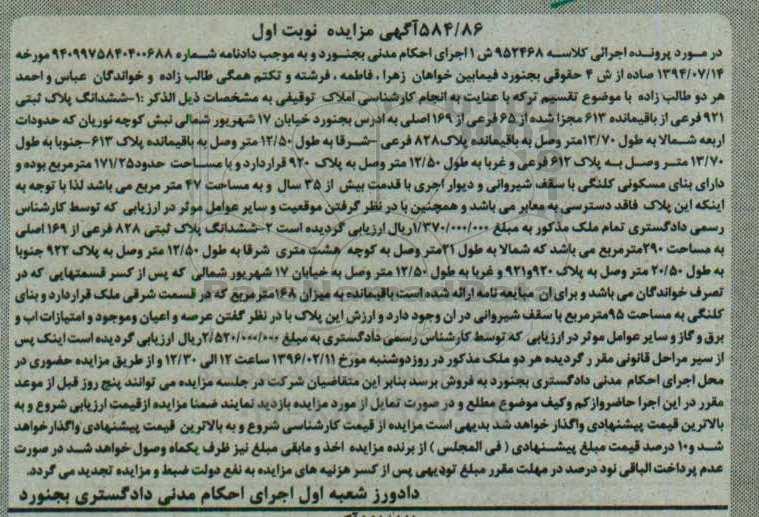 ۵۸۴/۸۶آگهی مزایده نوبت اول
در مورد پرونده اجرائی کلاسه ۹۵۲۴۶۸ ش ۱ اجرای احکام مدنی بجنورد و به موجب دادنامه شماره ۹۴۰۹۹۷۵۸۴۰۴۰۰۶۸۸ مورخه
۱۳۹۴/۰۷/۱۴ صاده از ش ۴ حقوقی بجنورد فیمابین خواهان زهرا ، فاطمه ، فرشته و تکتم همگی طالب زاده و خواندگان عباس و احمد
هر دو طالب زاده با موضوع تقسیم ترکه با عنایت به انجام کارشناسی املاک توقیفی به مشخصات ذیل الذکر :۱-ششدانگ پلاک ثبتی
۹۲۱ فرعی از باقیمانده ۶۱۳ مجزا شده از ۶۵ فرعی از ۱۶۹ اصلی به ادرس بجنورد خیابان ۱۷ شهریور شمالی نبش کوچه نوریان که حدودات
اربعه شمالا به طول ۱۳/۷۰متر وصل به باقیمانده پلاک۸۲۸ فرعی -شرقا به طول ۱۲/۵۰ متر وصل به باقیمانده پلاک ۶۱۳-جنوبا به طول
۱۳/۷۰ متر وصل به پلاک ۶۱۲ فرعی و غربا به طول ۱۲/۵۰ متر وصل به پلاک ۹۲۰ قراردارد و با مساحت حدود۱۷۱/۲۵ مترمربع بوده و
دارای بنای مسکونی کلنگی با سقف شیروانی و دیوار آجری با قدمت بیش از ۳۵ سال و به مساحت ۴۷ متر مربع می باشد لذا با توجه به
اینکه این پلاک فاقد دسترسی به معابر می باشد و همچنین با در نظر گرفتن موقعیت و سایر عوامل موثر در ارزیابی که توسط کارشناس
رسمی دادگستری تمام ملک مذکور به مبلغ ۱/۳۷۰/۰۰۰/۰۰۰ریال ارزیابی گردیده است ۲-ششدانگ پلاک ثبتی ۸۲۸ فرعی از ۱۶۹ اصلی
به مساحت ۲۹۰مترمربع می باشد که شمالا به طول ۲۱متر وصل به کوچه هشت متری شرقا به طول ۱۲/۵۰ متر وصل به پلاک ۹۲۲ جنوبا
به طول ۲۰/۵۰ متر وصل به پلاک ۹۲۰و۹۲۱ و غربا به طول ۱۲/۵۰ متر وصل به خیابان ۱۷ شهریور شمالی که پس از کسر قسمتهایی که در
تصرف خواندگان می باشد و برای ان مبایعه نامه ارائه شده است باقیمانده به میزان ۱۶۸مترمربع که در قسمت شرقی ملک قراردارد و بنای
کلنگی به مساحت ۹۵مترمربع با سقف شیروانی در ان وجود دارد و ارزش این پلاک با در نظر گفتن عرصه و اعیان وموجود و امتیازات اب و
برق و گاز و سایر عوامل موثر در ارزیابی که توسط کارشناس رسمی دادگستری به مبلغ ۲/۵۲۰/۰۰۰/۰۰۰ریال ارزیابی گردیده است اینک پس
از سیر مراحل قانونی مقرر گردیده هر دو ملک مذکور در روزدوشنبه مورخ ۱۳۹۶/۰۲/۱۱ ساعت ۱۲ الی ۱۲/۳۰ و از طریق مزایده حضوری در
محل اجرای احکام مدنی دادگستری بجنورد به فروش برسد بنابر این متقاضیان شرکت در جلسه مزایده می توانند پنج روز قبل از موعد
مقرر در این اجرا حاضروازکم وکیف موضوع مطلع و در صورت تمایل از مورد مزایده بازدید نمایند ضمنا مزایده ازقیمت ارزیابی شروع و به
بالاترین قیمت پیشنهادی واگذار خواهد شد بدیهی است مزایده از قیمت کارشناسی شروع و به بالاترین قیمت پیشنهادی واگذار خواهد
شد و۱۰ درصد قیمت مبلغ پیشنهادی ( فی المجلس ) از برنده مزایده اخذ و مابقی مبلغ نیز ظرف یکماه وصول خواهد شد در صورت
عدم پرداخت الباقی نود درصد در مهلت مقرر مبلغ تودیهی پس از کسر هزنیه های مزایده به نفع دولت ضبط و مزایده تجدید می گردد.
دادورز شعبه اول اجرای احکام مدنی دادگستری بجنورد